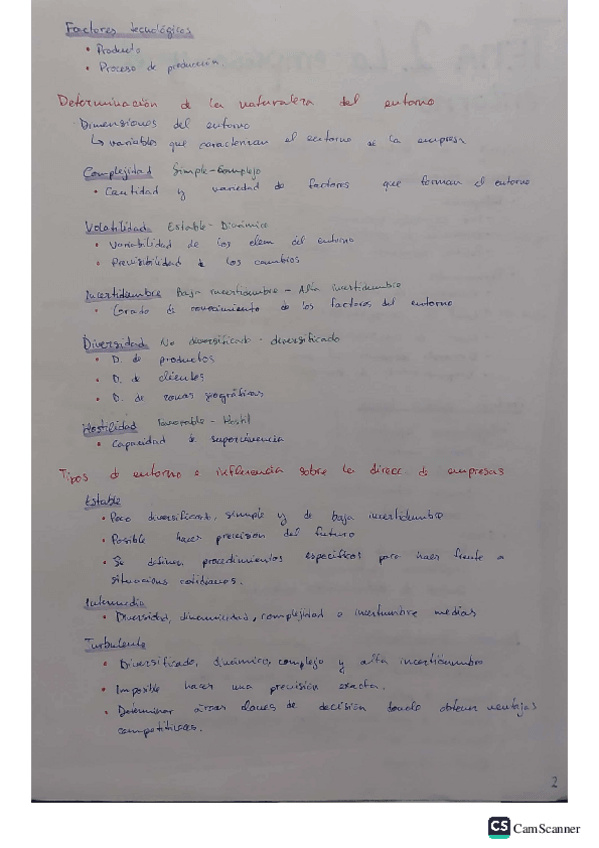 Factores tecnológicos
• Producto
• Proceso de producción
Determinación de la naturaleza del entorno
Dimensiones del entorno
↳ variables que caracterizan el entorno de la empresa
Complejidad Simple-Complejo
• Cantidad y variedad de factores que forman el entorno
Volatilidad Estable - Dinámico
• Variabilidad de los elem del entorno
• Previsibilidad d los cambios
Incertidumbre Baja incertidumbre - Alta incertidumbre
• Grado d conocimiento de los factores del entorno
Diversidad No diversificado - diversificado
• D. de productos
• D. de clientes
• D. de zonas geográficas
Hostilidad Favorable - Hostil
• Capacidad d supervivencia
Tipos d entorno e influencia sobre la direcc d empresas
Estable
• Poco diversificado, simple y de baja incertidumbre
• Posible hacer prevision del futuro
• Se definen procedimientos específicos para hacer frente a
situaciones cotidianas.
Intermedio
• Diversidad, dinamicidad, complejidad e incertumbre medias
Turbulento
• Diversificado, dinámico, complejo y alta incertidumbre
• Imposible hacer una previsión exacta.
• Determinar áreas claves de decisión donde obtener ventajas
competitivas.
2
CS CamScanner